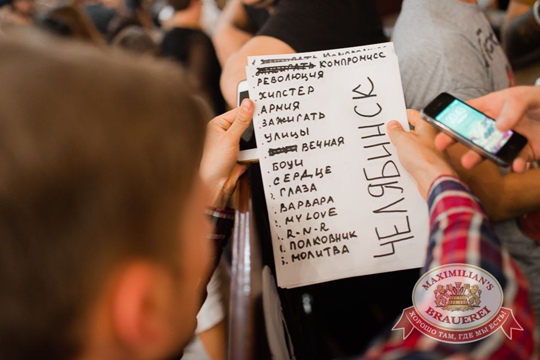 КОМПРОМИСС
РЕВОЛЮЦИЯ
ХИПСТЕР
АРМИЯ
ЗАЖИГАТЬ
УЛИЦЫ
ВЕЧНАЯ
БОУИ
СЕРДЦЕ
ГЛАЗА
ВАРВАРА
MY LOVE
R-N-R
ПОЛКОВНИК
МОЛИТВА
ЧЕЛЯБИНСК
MAXIMILIAN'S
BRAUEREI
ХОРОШО ТАМ, ГДЕ МЫ ЕСТЬ!